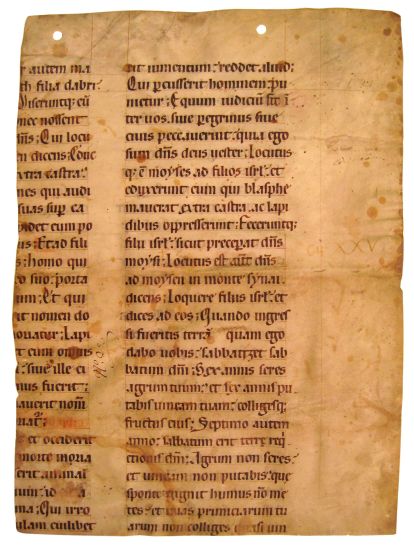 t autem ma
th filia dabri
miseruntq; eū
nec nossent
dn̄s; Qui locu
en dicens; Educ
castra.
nes qui audi
suas sup ca
videt eum po
s; Et ad filii
s; homo qui
o suo; porta
um; Et qui
it nomen do
ouiatur; Lapi
it eum omnis
siue ille ci
inus fuerit;
auerit nom̄
natˀ;
et occiderit
morte moria
serit animal
um; id
ma; Qui irro
ulam cuilibet
rit iumentum; reddet aliud;
Qui percusserit hominem; pu
nietur; Equum iudiciū sit ī
ter uos. siue pegrinus siue
ciuis peccauerit; quia ego
sum dn̄s deus uester; Locutus
q; ē moyses ad filios isrl̄; et
eduxerunt eum qui blasphe
mauerat extra castra. ac lapi
dibus oppresserunt; Feceruntq;
filii isrl̄. sicut preceperat dn̄s
moysi; Locutus est aut̄ dn̄s
ad moysen in monte synai.
dicens; Loquere filiis isrl̄. et
dices ad eos; Quando ingres
si fueritis terrā quam ego
dabo uobis; sabbatizet sab
batum dn̄i; Sex annis seres
agrum tuum; et sex annis pu
tabis uineam tuam; colligesq;
fructus eius; Septimo autem
anno; sabbatum erit terre req̄
etionis dn̄i; Agrum non seres.
et uineam non putabis; que
sponte gignit humus nō me
tes; et uuas primiciarum tu
arum non colliges quasi uin
XXV